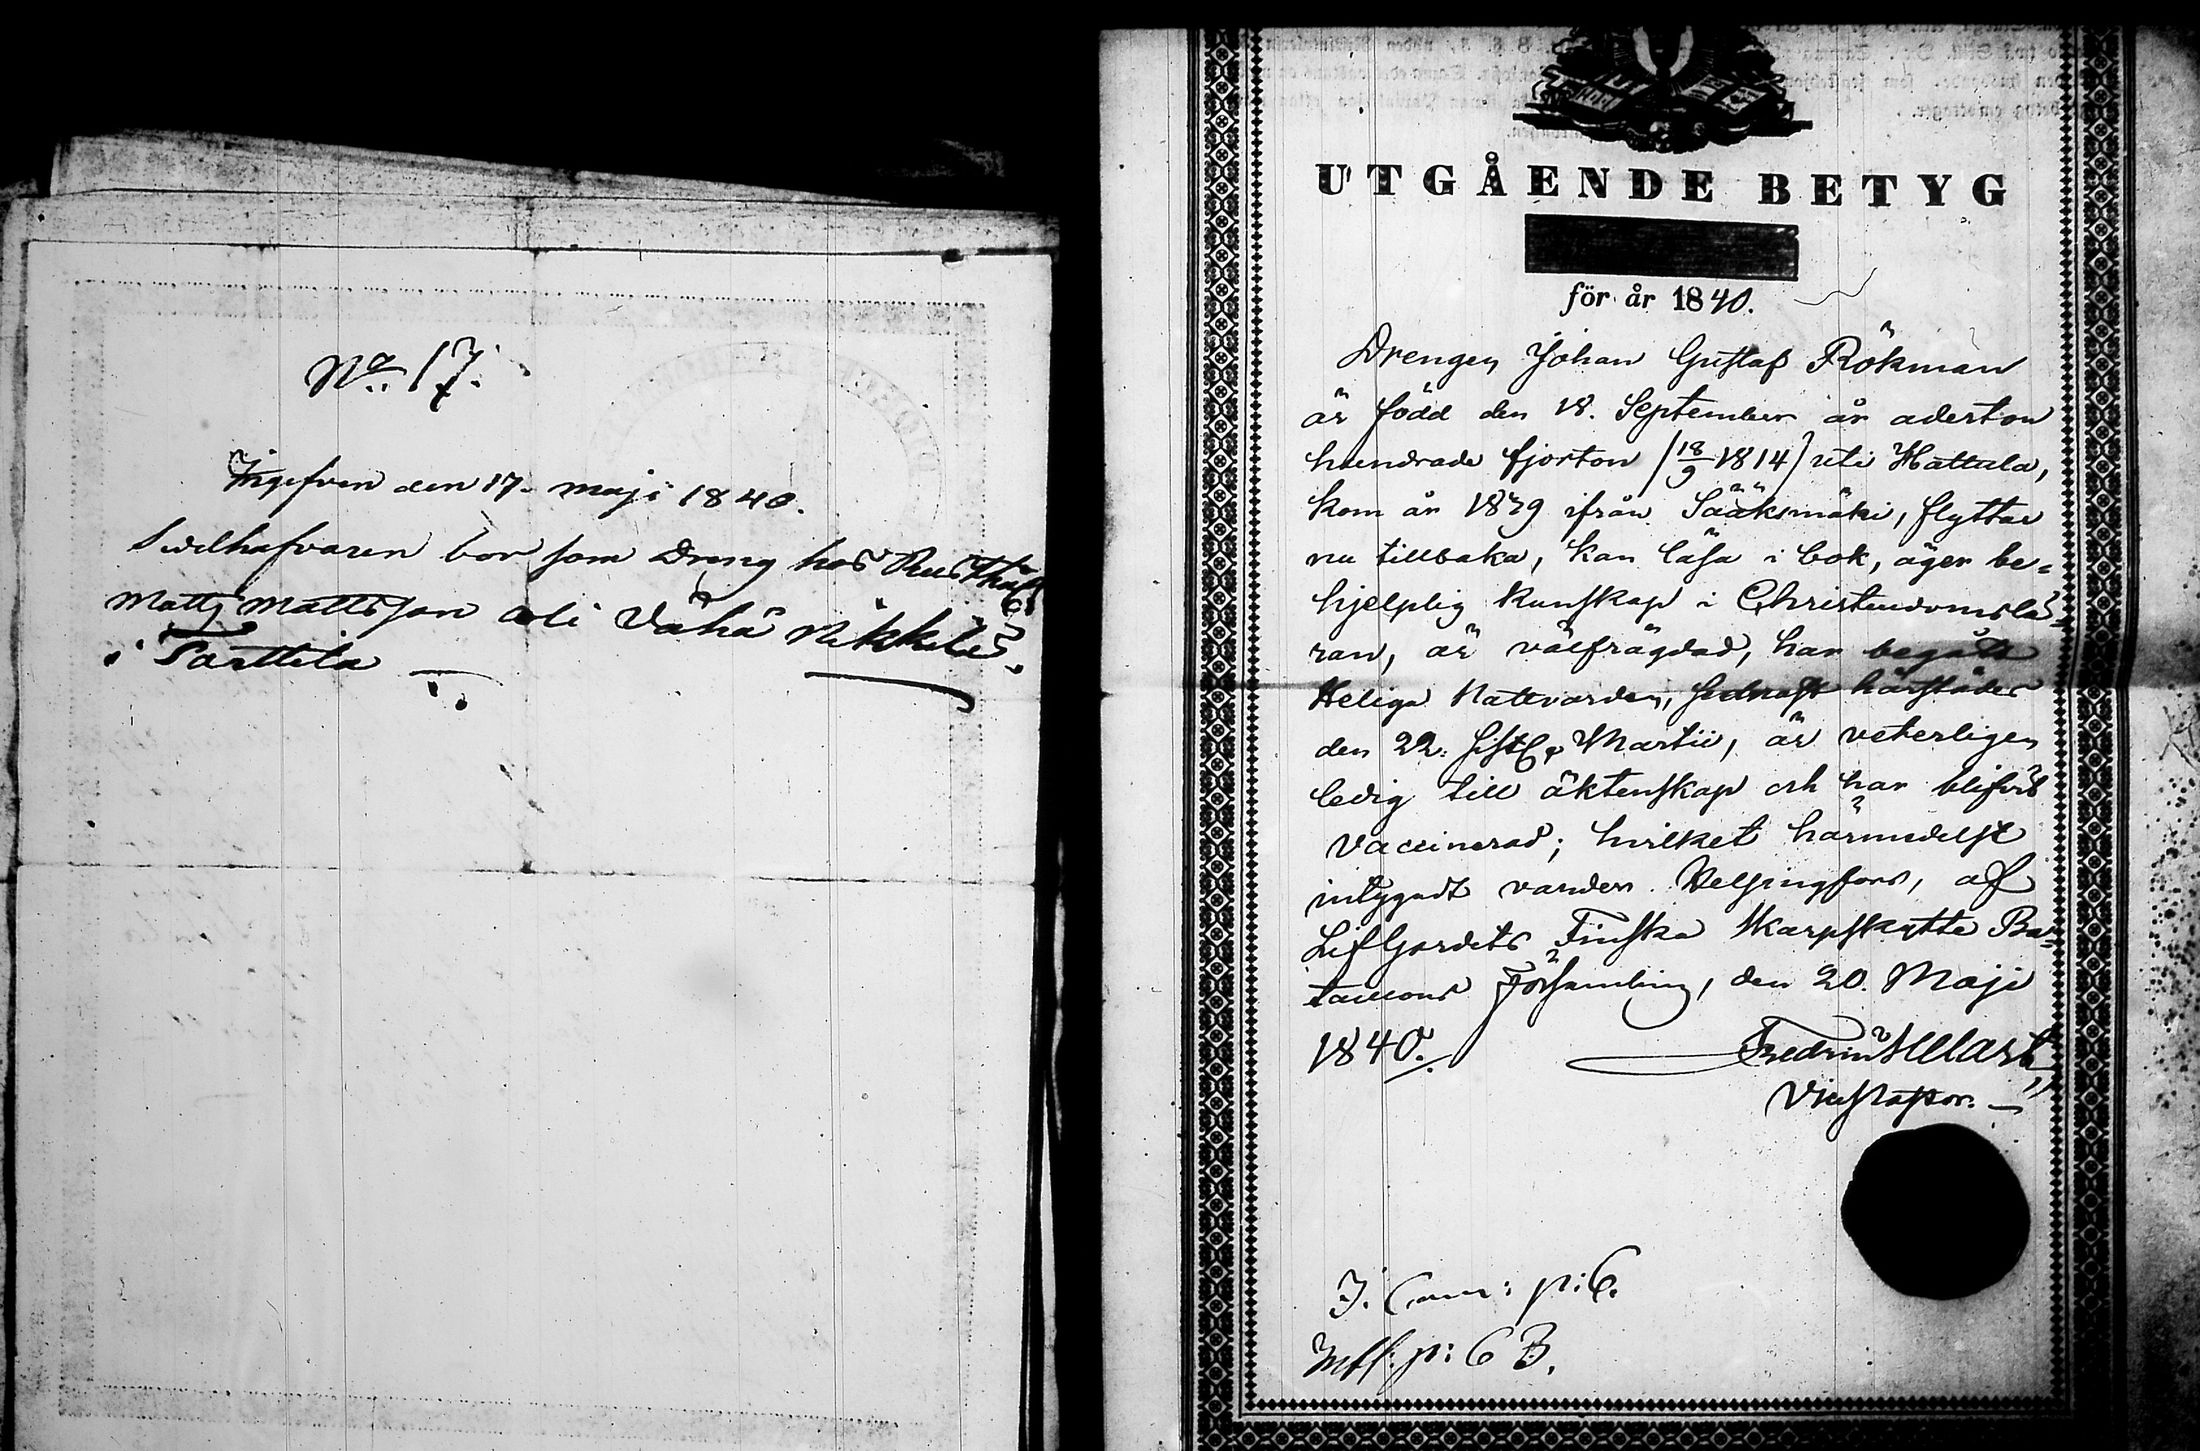 No 17.
Ingifven den 17. maji 1840.
bor som Dreng hos Rusth.
Matts Mattsson Arli Vähä Nikkilä
i Tarttila
UTGÅENDE BETYG
för år 1840.
Drengen Johan Gustaf Rökman
är född den 18. September år aderton
hundrade fjorton (18/9 1814) uti Hattula,
kom år 1839 ifrån Sääksmäki, flyttar
nu tillbaka, kan läsa i bok, äger be=
hjelplig kunskap i Christendomslä=
ran, är välfrägdad, har begått
Heliga Nattvarden, sednast härstädes
den 22. sistl. Martii, är veterligen
ledig till äktenskap och har blifvit
vaccinerad; hvilket härmedelst
intygadt varder. Helsingfors, af
LifGardets Finska Skarpskytte Ba=
taillons Församling, den 20. Maji
1840.
VicePastor.
I. Comm: p: 6.
Mtl: p: 6 B.